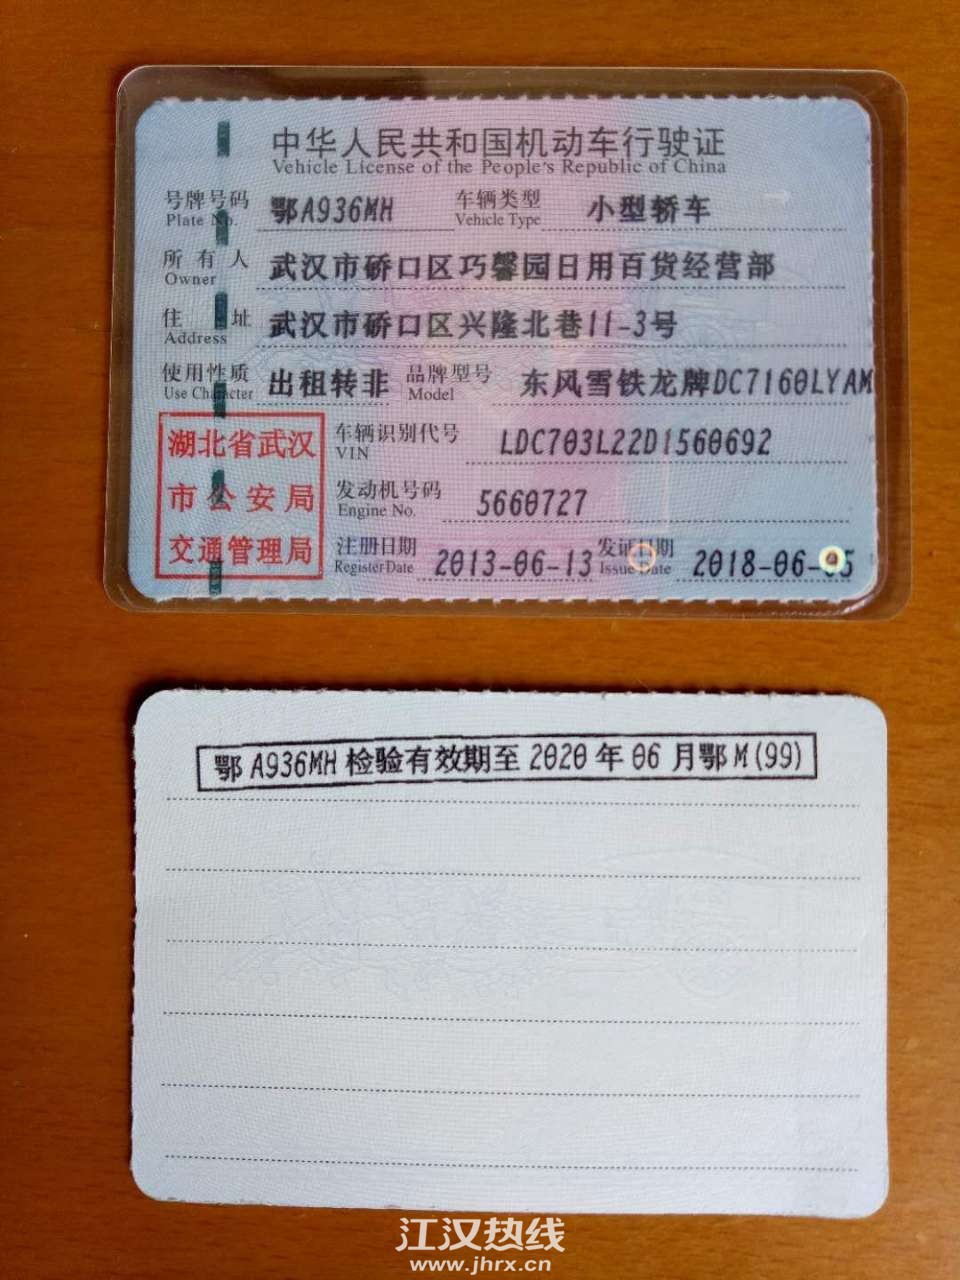 中华人民共和国机动车行驶证
Vehicle License of the People's Republic of China
号牌号码 鄂A936MH 车辆类型 小型轿车
Plate No. Vehicle Type
所有人 武汉市硚口区巧馨园日用百货经营部
Owner
住址 武汉市硚口区兴隆北巷11-3号
Address
使用性质 出租转非 品牌型号 东风雪铁龙牌DC7160LYAM
Use Character Model
湖北省武汉
市公安局
交通管理局
车辆识别代号 LDC703L22D1560692
VIN
发动机号码 5660727
Engine No.
注册日期 2013-06-13 发证日期 2018-06-05
Register Date Issue Date
鄂A936MH检验有效期至2020年06月鄂M(99)
江汉热线
www.jhrx.cn